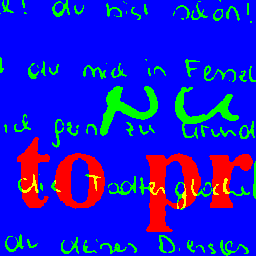 du bist schön!
du mich in Fessel
nu
gern zu Grund
to pr
die Todtenglocke
du deines Dienstes